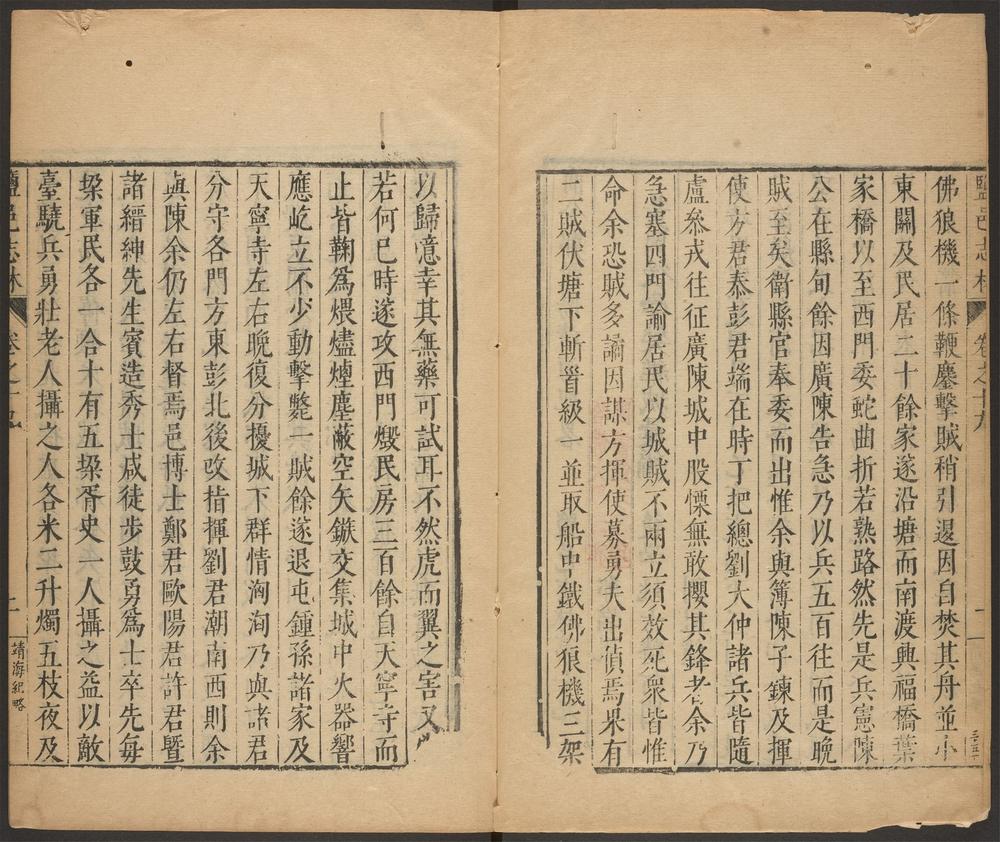 鹽邑志林
卷之十九
二
佛狼機一條鞭鏖擊賊稍引退因自焚其舟並小
東關及民居二十餘家遂沿塘而南渡興福橋葉
家橋以至西門委蛇曲折若熟路然先是兵憲陳
公在縣旬餘因廣陳告急乃以兵五百往而是晚
賊至矣衛縣官奉委而出惟余與簿陳子鍊及揮
使方君泰彭君端在時丁把總劉大仲諸兵皆隨
盧叅戎往征廣陳城中股慄無敢攖其鋒者余乃
急塞四門諭居民以城賊不兩立須效死衆皆惟
命余恐賊多譎因謀方揮使募勇夫出偵焉果有
二賊伏塘下斬首級一並取船中鐵佛狼機三架
以歸憶幸其無藥可試耳不然虎而翼之害又
若何巳時遂攻西門燬民房三百餘自天寧寺而
止皆鞠爲煨燼煙塵蔽空矢鏃交集城中火器響
應屹立不少動擊斃一賊餘遂退屯鍾孫諸家及
天寧寺左右晚復分擾城下群情洶洶乃與諸君
分守各門方東彭北後改指揮劉君潮南西則余
與陳余仍左右督焉邑博士鄭君歐陽君許君暨
諸縉紳先生賓造秀士咸徒步鼓勇爲士卒先每
垜軍民各一合十有五垜胥史一人攝之益以敵
臺驍兵勇壯老人攝之人各米二升燭五枝夜及
鹽邑志林
卷之十九
二
靖海紀略